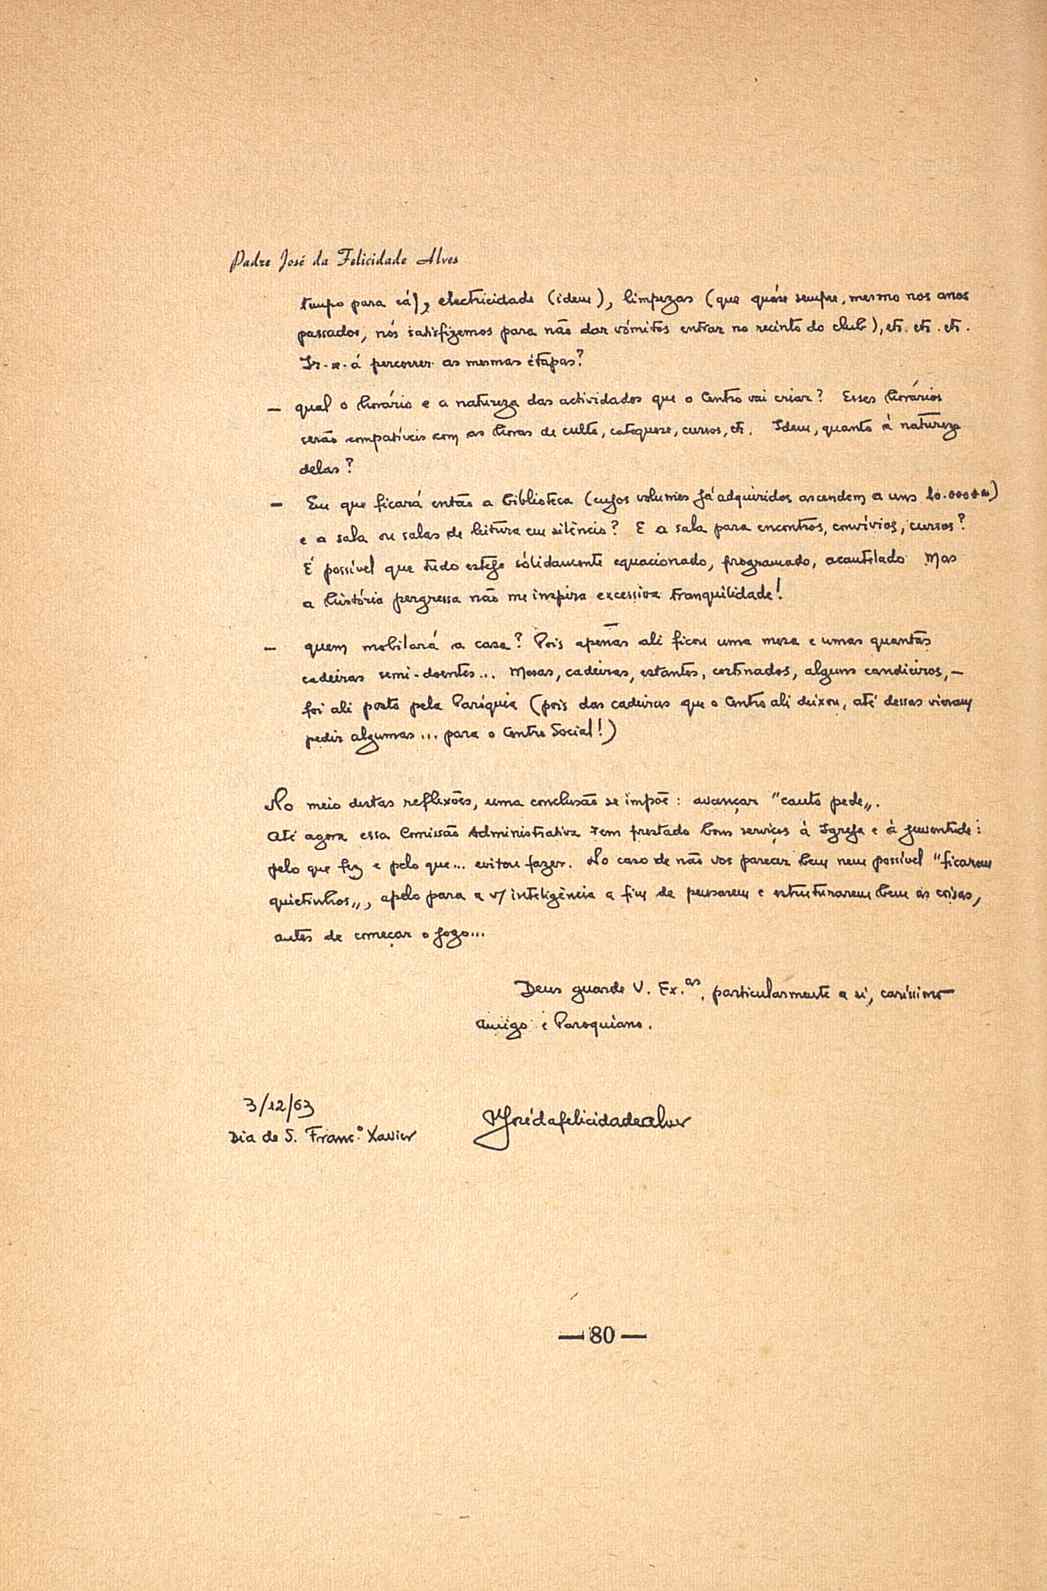 Padre José da Felicidade Alves
tempo para cá), electricidade (idem), limpezas (que quáse sempre, mesmo nos anos
passados, nós satisfizemos para não dar vómitos entrar no recinto do club), etc. etc. etc.
Ir-se-á percorrer as mesmas étapas?
— qual o horário e a natureza das actividades que o Centro vai criar? Esses horários
serão compatíveis com as horas de culto, catequese, cursos, etc. Idem, quanto à natureza
delas?
— Em que ficará então a biblioteca (cujos volumes já adquiridos ascendem a uns
e a sala ou salas de leitura em silêncio? E a sala para encontros, convívios, cursos?
É possível que tudo esteja sòlidamente equacionado, programado, acautelado Mas
a história pergressa não me inspira excessiva tranquilidade!
— quem mobilará a casa? Pois apenas ali ficou uma mesa e umas quantas
cadeiras semi-doentes... Mesas, cadeiras, estantes, cortinados, alguns candieiros, —
foi ali posto pela Paróquia (pois das cadeiras que o Centro ali deixou, até dessas vieram
pedir algumas... para o Centro Social!)
No meio destas reflexões, uma conclusão se impõe: avançar "cauto pede„.
Até agora essa Comissão Administrativa tem prestado bons serviços à Igreja e à juventude:
pelo que fez e pelo que... evitou fazer. No caso de não vos parecer bem nem possível "ficarem
quietinhos„, apelo para a v/ inteligência a fim de pensarem e estruturarem bem as coisas,
antes de começar o jogo...
Deus guarde V. Ex.as, particularmente a si, caríssimo
Amigo e Paroquiano.
3/12/63
Dia de S. Franc.º Xavier
P. José da felicidade alves
— 80 —